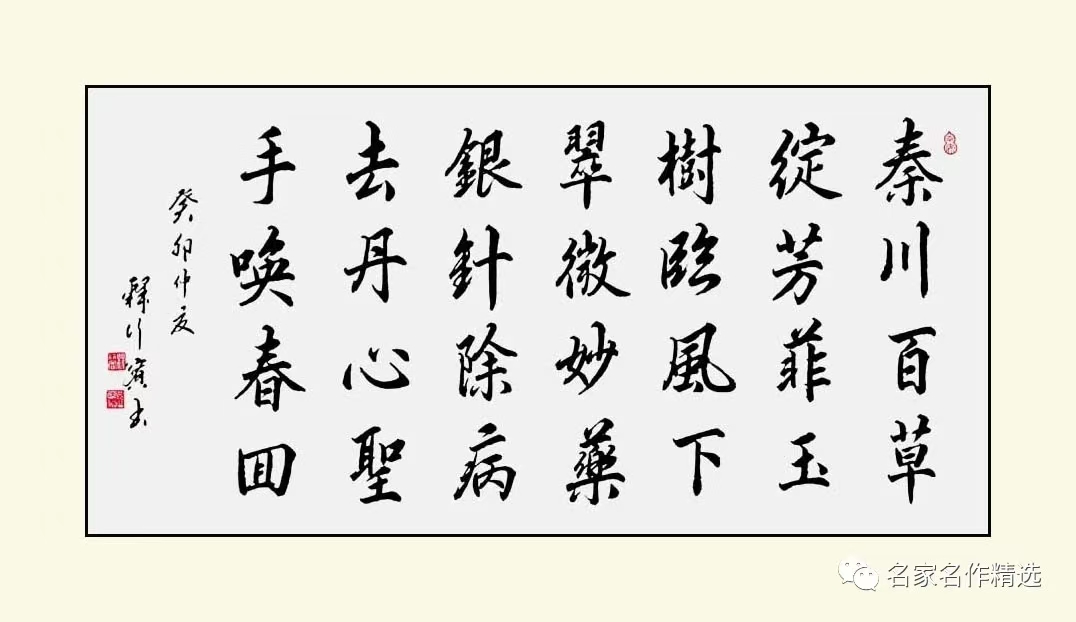 秦川百草
綻芳菲玉
樹臨風下
翠微妙藥
銀針除病
去丹心聖
手喚春回
癸卯仲夏
釋行賓書
名家名作精选